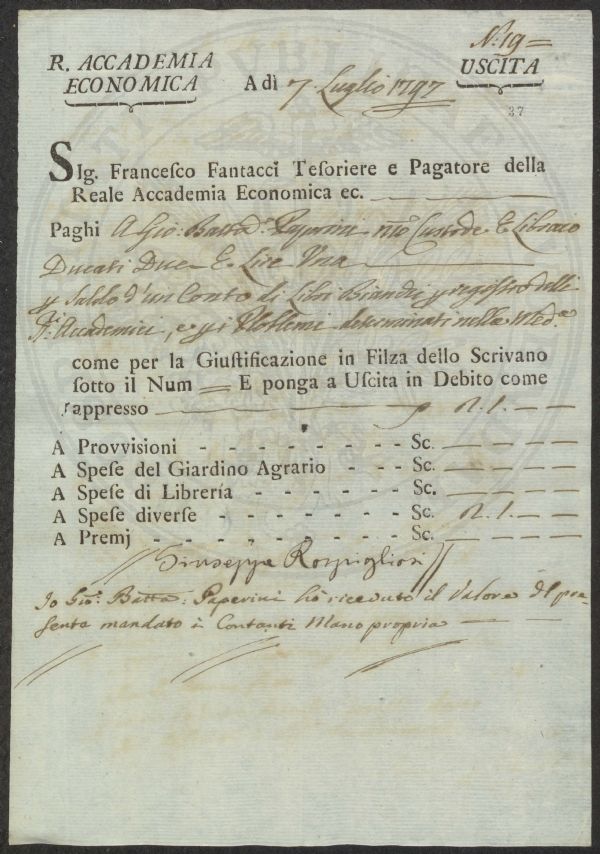 R. ACCADEMIA
ECONOMICA
A dì 7 Luglio 1797
N: 19=
USCITA
37
SIg. Francesco Fantacci Tesoriere e Pagatore della
Reale Accademia Economica ec.
Paghi A Gio: Batta: Paperini Custode E Libraio
Ducati Due E. Lire Una
p Saldo d'un Conto di Libri p registro delli
Accademici, e p i Problemi determinati nella Meda
come per la Giustificazione in Filza dello Scrivano
sotto il Num = E ponga a Uscita in Debito come
rappresso — p 2. 1. — —
A Provvisioni - - - - - - - - Sc. — — — —
A Spese del Giardino Agrario - - - Sc. — — — —
A Spese di Librería - - - - - - Sc. — — — —
A Spese diverse - - - - - - - Sc. 2. 1. — —
A Premj - - - - - - - - - Sc. — — — —
Giuseppe Rospigliosi
Io Gio: Batta: Paperini hò ricevuto il Valore del pre-
sente mandato in Contanti Mano propria